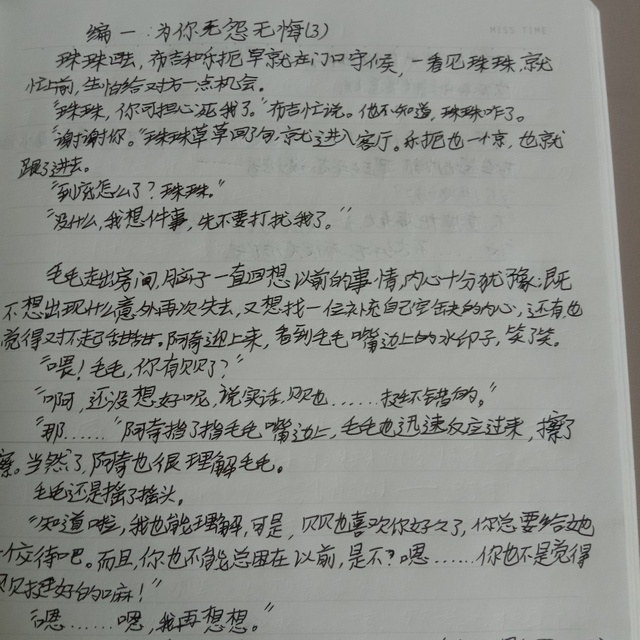 编一：为你无怨无悔(3)
珠珠回去，布吉和乐扼早就在门口守候，一看见珠珠，就
忙上前，生怕给对方一点机会。
"珠珠，你可担心死我了。"布吉忙说。他不知道，珠珠咋了。
"谢谢你。"珠珠草草回了句，就进入客厅。乐扼也一惊，也就
跟了进去。
"到底怎么了？珠珠。"
"没什么，我想件事，先不要打扰我了。"
毛毛走出房间，脑子一直回想以前的事情，内心十分犹豫：既
不想出现什么意外再次失去，又想找一位补充自己空缺的内心，还有，也
觉得对不起了甜甜。阿奇迎上来，看到毛毛嘴边上的水印子，笑了笑。
"喂！毛毛，你有贝贝了？"
"啊，还没想好呢，说实话，贝贝也……挺不错的。"
"那……"阿奇挡了挡毛毛嘴边上，毛毛也迅速反应过来，擦了
擦。当然了，阿奇也很理解毛毛。
毛毛还是摇了摇头。
"知道啦，我也能理解，可是，贝贝也喜欢你好久了，你总要给她
一个交待吧。而且，你也不能总困在以前，是不？嗯……你也不是觉得
贝贝挺好的嘛！"
"嗯……嗯，我再想想。"